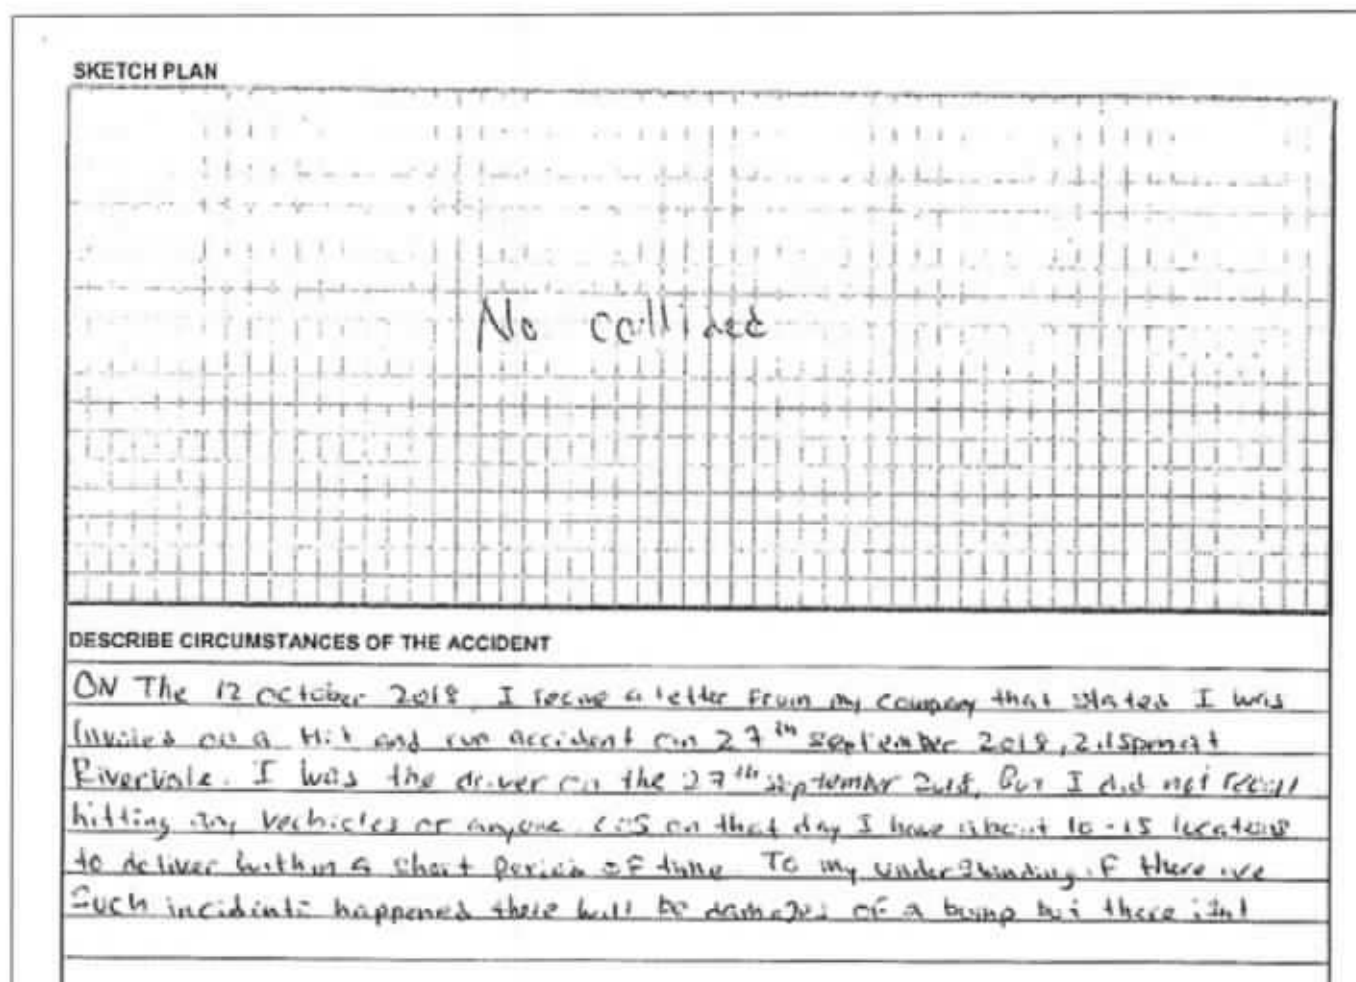 SKETCH PLAN
No collided
DESCRIBE CIRCUMSTANCES OF THE ACCIDENT
ON The 12 october 2018, I recive a letter From my company that stated I was
Involed on a Hit and run accident on 27th september 2018, 2.15pm at
Rivervale. I was the driver on the 27th september 2018, But I did not recall
hitting any vechicles or anyone. cos on that day I have about 10-15 locations
to deliver within a short period of time. To my understanding if there are
Such incidents happened there will be damages of a bump but there isnt